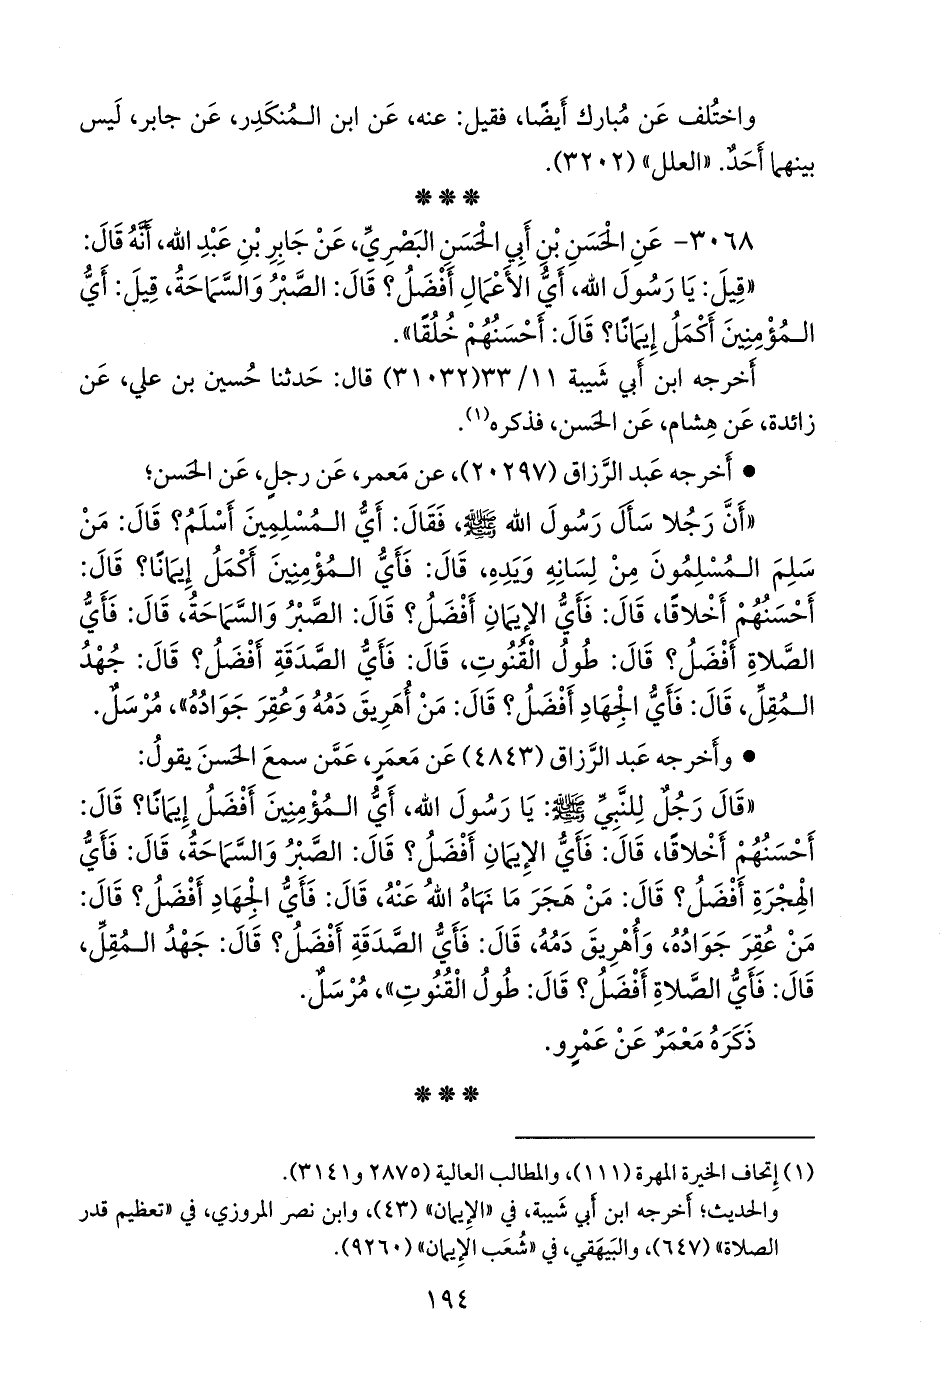 واختُلف عَن مُبارك أَيضًا، فقيل: عنه، عَن ابن الـمُنكَدِر، عَن جابر، لَيس
بينهما أَحَدٌ. «العلل» (٣٢٠٢).
* * *
٣٠٦٨- عَنِ الْحَسَنِ بْنِ أَبِي الْحَسَنِ البَصْرِيِّ، عَنْ جَابِرِ بْنِ عَبْدِ الله، أَنَّهُ قَالَ:
«قِيلَ: يَا رَسُولَ الله، أَيُّ الأَعْمَالِ أَفْضَلُ؟ قَالَ: الصَّبْرُ وَالسَّمَاحَةُ، قِيلَ: أَيُّ
الـمُؤْمِنِينَ أَكْمَلُ إِيمَانًا؟ قَالَ: أَحْسَنُهُمْ خُلُقًا».
أَخرجه ابن أَبي شَيبة ١١/ ٣٣(٣١٠٣٢) قال: حَدثنا حُسين بن علي، عَن
زائدة، عَن هِشام، عَن الحَسن، فذكره(١).
• أَخرجه عَبد الرَّزاق (٢٠٢٩٧)، عن مَعمر، عَن رجلٍ، عَن الحَسن؛
«أَنَّ رَجُلا سَأَلَ رَسُولَ الله ﷺ، فَقَالَ: أَيُّ الـمُسْلِمِينَ أَسْلَمُ؟ قَالَ: مَنْ
سَلِمَ الـمُسْلِمُونَ مِنْ لِسَانِهِ وَيَدِهِ، قَالَ: فَأَيُّ الـمُؤْمِنِينَ أَكْمَلُ إِيمَانًا؟ قَالَ:
أَحْسَنُهُمْ أَخْلاقًا، قَالَ: فَأَيُّ الإِيمَانِ أَفْضَلُ؟ قَالَ: الصَّبْرُ وَالسَّمَاحَةُ، قَالَ: فَأَيُّ
الصَّلاةِ أَفْضَلُ؟ قَالَ: طُولُ الْقُنُوتِ، قَالَ: فَأَيُّ الصَّدَقَةِ أَفْضَلُ؟ قَالَ: جُهْدُ
الـمُقِلِّ، قَالَ: فَأَيُّ الْجِهَادِ أَفْضَلُ؟ قَالَ: مَنْ أُهَرِيقَ دَمُهُ وَعُقِرَ جَوَادُهُ»، مُرْسَلٌ.
• وأَخرجه عَبد الرَّزاق (٤٨٤٣) عَن مَعمَرٍ، عَمَّن سمعَ الحَسنَ يقولُ:
«قَالَ رَجُلٌ لِلنَّبِيِّ ﷺ: يَا رَسُولَ الله، أَيُّ الـمُؤْمِنِينَ أَفْضَلُ إِيمَانًا؟ قَالَ:
أَحْسَنُهُمْ أَخْلاقًا، قَالَ: فَأَيُّ الإِيمَانِ أَفْضَلُ؟ قَالَ: الصَّبْرُ وَالسَّمَاحَةُ، قَالَ: فَأَيُّ
الْهِجْرَةِ أَفْضَلُ؟ قَالَ: مَنْ هَجَرَ مَا نَهَاهُ اللهُ عَنْهُ، قَالَ: فَأَيُّ الْجِهَادِ أَفْضَلُ؟ قَالَ:
مَنْ عُقِرَ جَوَادُهُ، وَأُهْرِيقَ دَمُهُ، قَالَ: فَأَيُّ الصَّدَقَةِ أَفْضَلُ؟ قَالَ: جَهْدُ الـمُقِلِّ،
قَالَ: فَأَيُّ الصَّلاةِ أَفْضَلُ؟ قَالَ: طُولُ الْقُنُوتِ»، مُرْسَلٌ.
ذَكَرَهُ مَعْمَرٌ عَنْ عَمْرٍو.
* * *
(١) إتحاف الخيرة المهرة (١١١)، والمطالب العالية (٢٨٧٥ و٣١٤١).
والحديث؛ أخرجه ابن أَبي شَيبة، في «الإِيمان» (٤٣)، وابن نصر المروزي، في «تعظيم قدر
الصلاة» (٦٤٧)، والبَيهَقي، في «شُعَب الإِيمان» (٩٢٦٠).
١٩٤